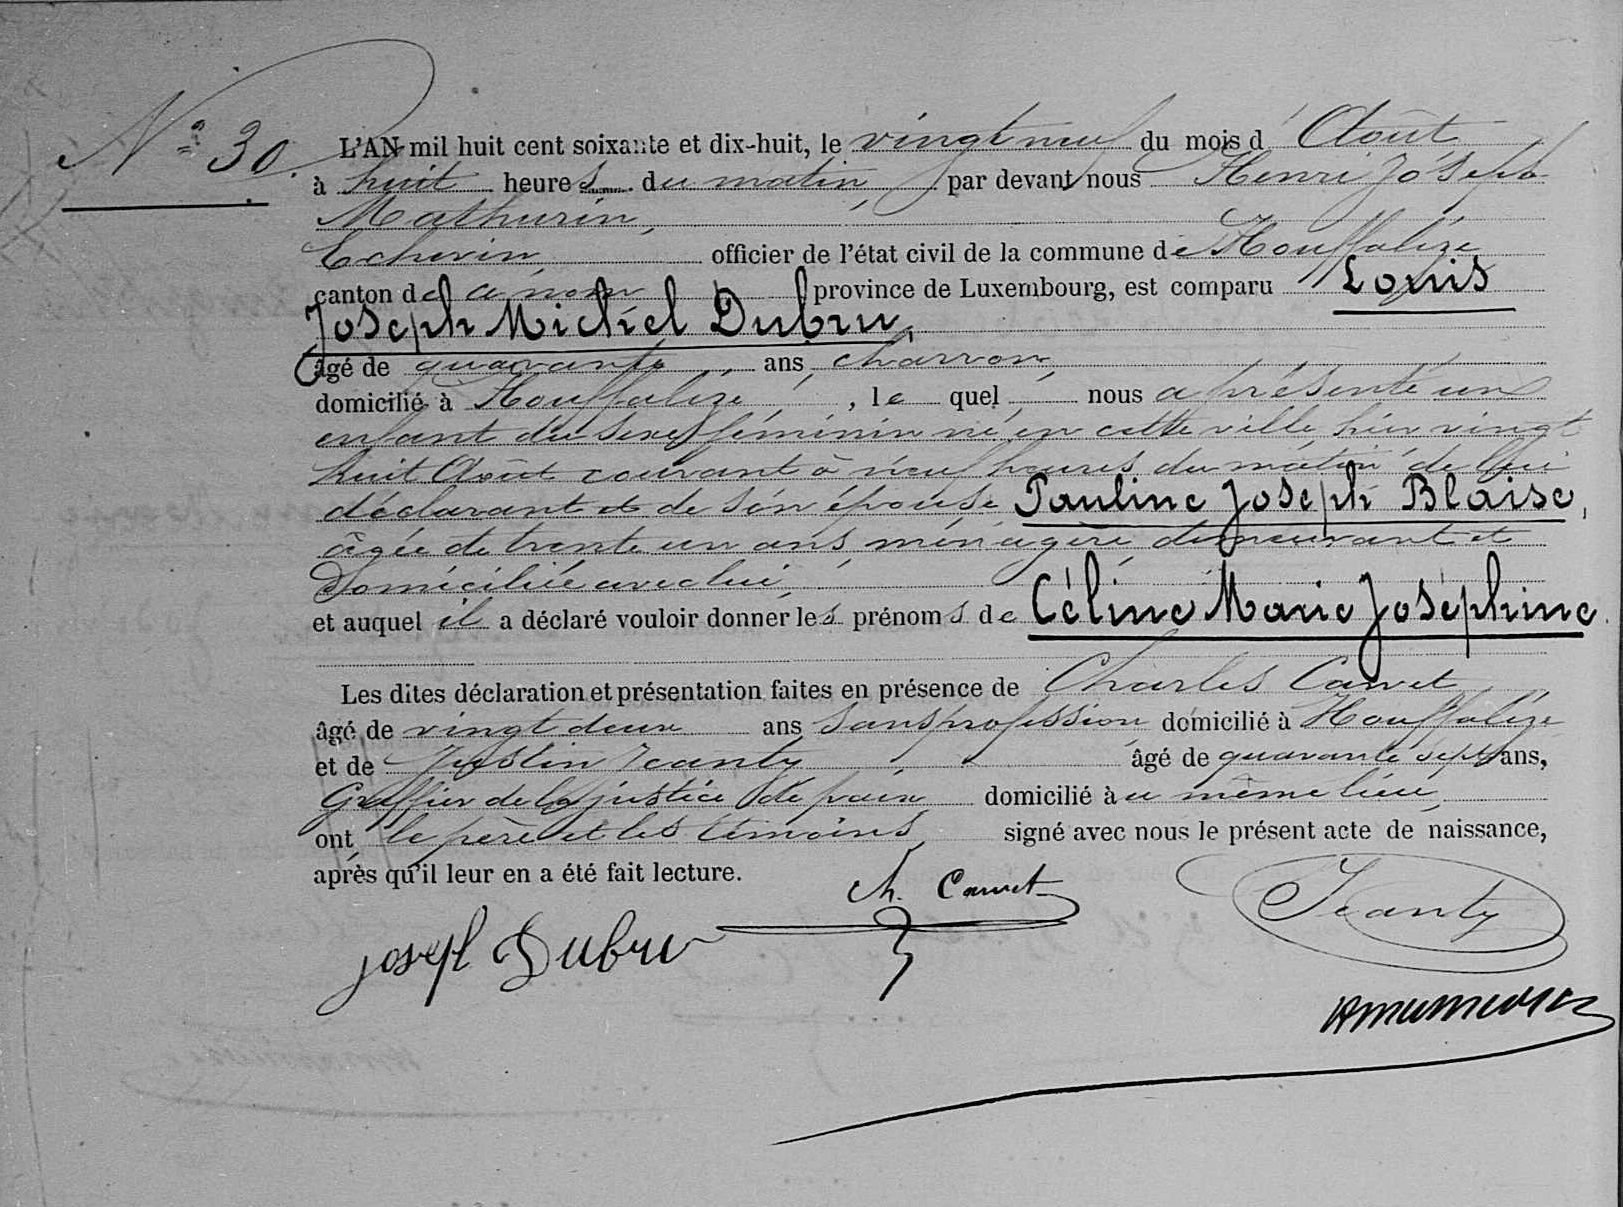 N° 30.
L'AN mil huit cent soixante et dix-huit, le vingt neuf du mois d'Août
à huit heures du matin, par devant nous Henri Joseph
Mathurin,
Echevin, officier de l'état civil de la commune de Houffalize
canton de ce nom province de Luxembourg, est comparu Louis
Joseph Michel Dubru,
âgé de quarante ans, charron,
domicilié à Houffalize, , le quel, nous a présenté un
enfant du sexe féminin né en cette ville hier vingt
huit Août courant à neuf heures du matin de lui
déclarant et de son épouse Pauline Joseph Blaise,
âgée de trente un ans, ménagère, demeurant et
domiciliée avec lui,
et auquel il a déclaré vouloir donner les prénoms de Céline Marie Joséphine.
Les dites déclaration et présentation faites en présence de Charles
âgé de vingt deux ans sans profession, domicilié à Houffalize
et de Justin Jeanty âgé de quarante sept ans,
Greffier de la justice de paix domicilié à u même lieu,
ont le père et les témoins signé avec nous le présent acte de naissance,
après qu'il leur en a été fait lecture.
Ch.
Jeanty
Joseph Dubru